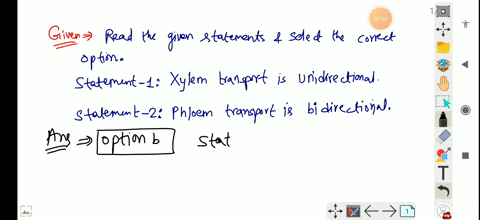 Given ⇒ Read the given statements & select the correct
option.
Statement-1: Xylem transport is unidirectional.
Statement-2: Phloem transport is bidirectional.
Ans ⇒ option b Stat